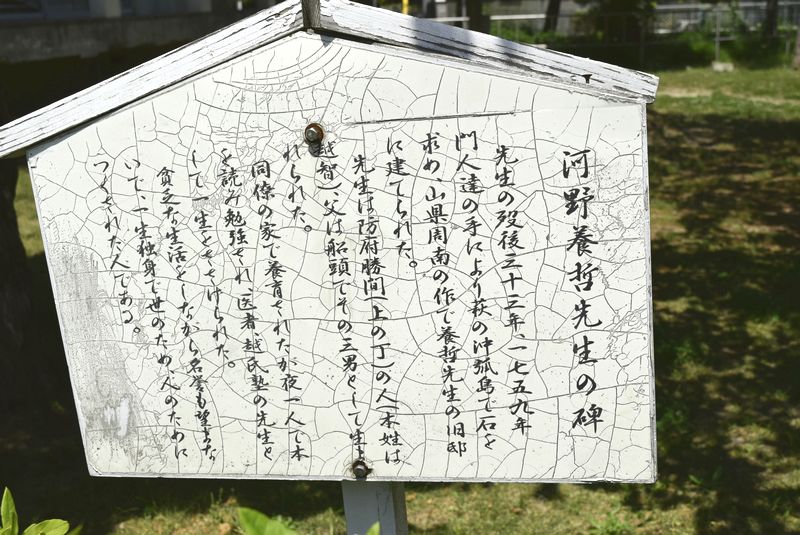 河野養哲先生の碑
先生の歿後三十三年、一七五九年
門人達の手により萩の沖弧島で石を
求め、山県周南の作で養哲先生の旧邸
に建てられた。
先生は防府勝間(上の丁)の人(本姓は
越智)、父は船頭でその三男として生ま
れられた。
同僚の家で養育されたが夜一人で本
を読み勉強され、医者、越氏塾の先生と
して一生をささげられた。
貧乏な生活をしながら名誉も望まな
いで、一生独身で世のため、人のために
つくされた人である。